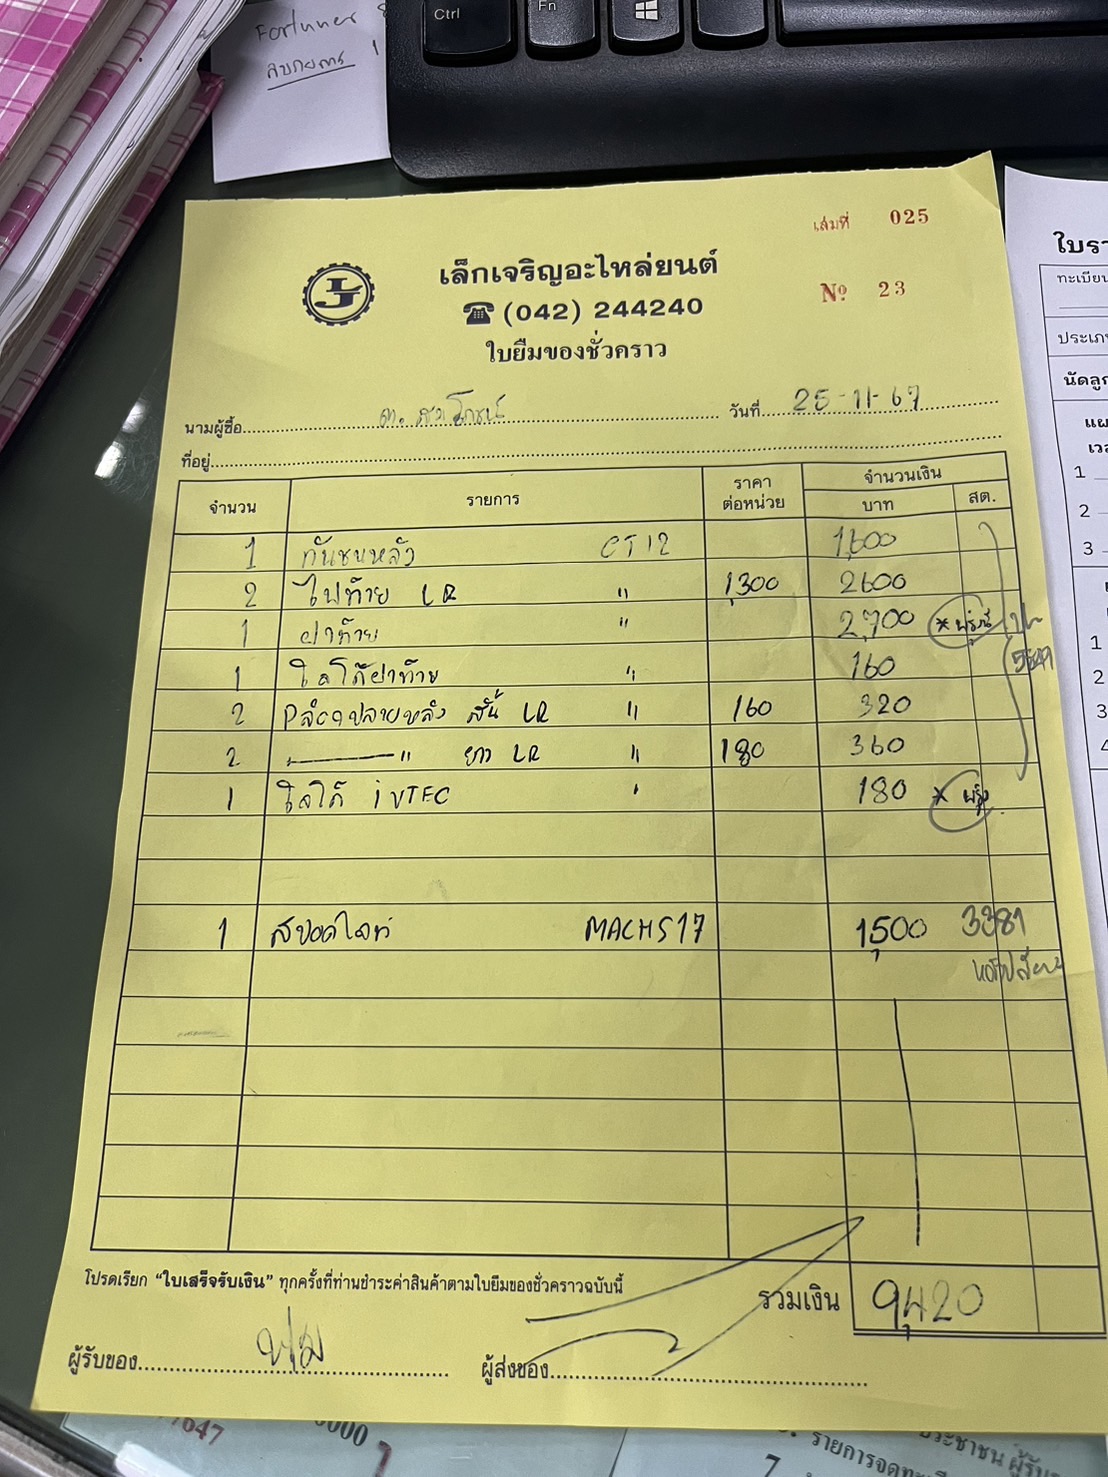 Ctrl
Fn
Fortuner
เล่มที่ 025
เล็กเจริญอะไหล่ยนต์
☎ (042) 244240
ใบยืมของชั่วคราว
Nº 23
LJ
นามผู้ซื้อ
วันที่ 25-11-67
ที่อยู่
จำนวน รายการ ราคาต่อหน่วย จำนวนเงิน
บาท สต.
1 กันชนหลัง CT12 1,600
2 ไฟท้าย LR " 1,300 2600
1 ฝาท้าย " 2,700
1 โลโก้ฝาท้าย " 160
2 ปลายหลัง สั้น LR " 160 320
2 " ยาว LR " 180 360
1 โลโก้ i VTEC " 180
1 สปอตไลท์ MACHS17 1,500 3381
โปรดเรียก "ใบเสร็จรับเงิน" ทุกครั้งที่ท่านชำระค่าสินค้าตามใบยืมของชั่วคราวฉบับนี้
รวมเงิน 9,420
ผู้รับของ
ผู้ส่งของ
ทะเบียน
ประเภ
นัดลูก
1
2
3
1
2
3
4
7647
0000
รายการจดทะเ
ประชาชน
7